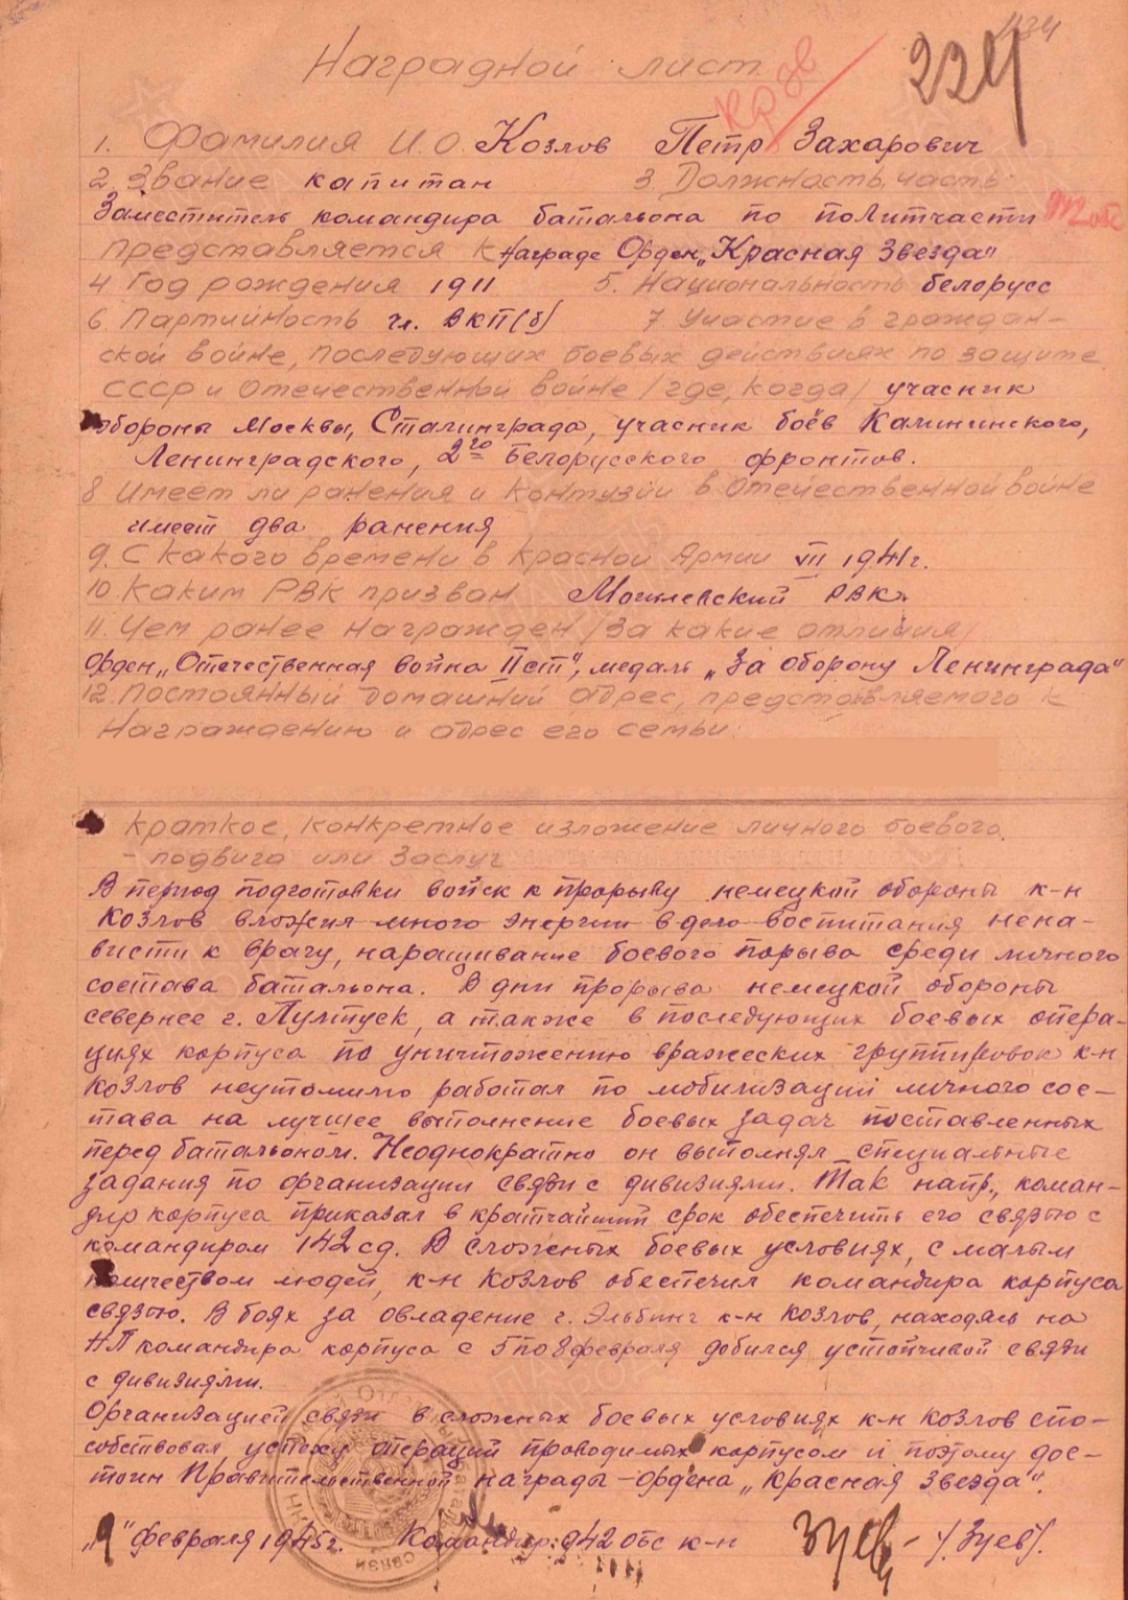 134
224
Наградной лист
Кр Зв
1. Фамилия И.О. Козлов Петр Захарович
2. Звание капитан 3. Должность, часть
Заместитель командира батальона по политчасти 942 обс
представляется к награде Орден „Красная Звезда"
4 Год рождения 1911 5. Национальность белорусс
6. Партийность чл. ВКП(б) 7. Участие в граждан-
ской войне, последующих боевых действиях по защите
СССР и Отечественной войне /где, когда/ учасник
обороны Москвы, Сталинграда, учасник боёв Калининского,
Ленинградского, 2го Белорусского фронтов.
8 Имеет ли ранения и контузии в Отечественной войне
имеет два ранения
9. С какого времени в Красной Армии VII 1941г.
10 Каким РВК призван Могилевский РВК.
11. Чем ранее награжден /за какие отличия/
Орден „Отечественная война II ст", медаль „За оборону Ленинграда"
12. Постоянный домашний адрес, представляемого к
награждению и адрес его семьи:
Краткое, конкретное изложение личного боевого
- подвига или заслуг
В период подготовки войск к прорыву немецкой обороны к-н
Козлов вложил много энергии в дело воспитания нена-
висти к врагу, наращивание боевого порыва среди личного
состава батальона. В дни прорыва немецкой обороны
севернее г. Пултуск, а также в последующих боевых опера-
циях корпуса по уничтожению вражеских группировок к-н
Козлов неутомимо работал по мобилизации личного сос-
тава на лучшее выполнение боевых задач поставленных
перед батальоном. Неоднократно он выполнял специальные
задания по организации связи с дивизиями. Так напр., коман-
дир корпуса приказал в кратчайший срок обеспечить его связью с
командиром 142 сд. В сложных боевых условиях, с малым
количеством людей, к-н Козлов обеспечил командира корпуса
связью. В боях за овладение г. Эльбинг к-н Козлов, находясь на
НП командира корпуса с 5 по 8 февраля добился устойчивой связи
с дивизиями.
Организацией связи в сложных боевых условиях к-н Козлов спо-
собствовал успеху операций проводимых корпусом и поэтому дос-
тоин Правительственной награды - ордена „Красная Звезда".
„9" февраля 1945г. Командир 942 обс к-н Зуев - /Зуев/.